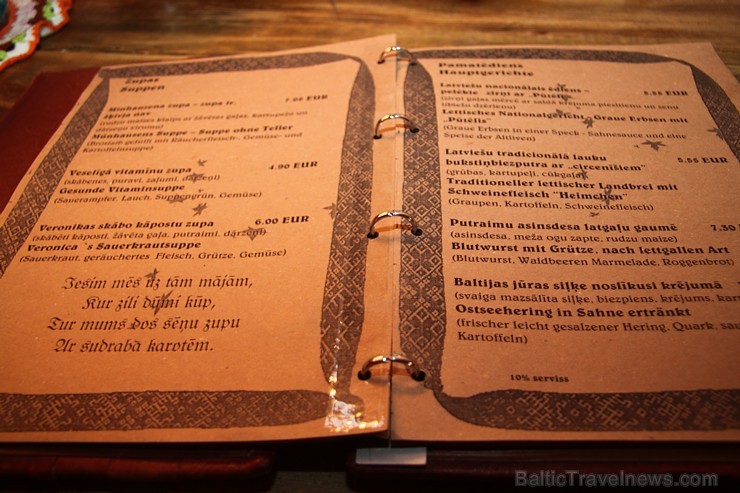 Zupas
Suppen
Minhauzena zupa – zupa šr. 7.95 EUR
šķīvja nav
Münhauzens Suppe – Suppe ohne Teller
(Brotlaib gefüllt mit Räucherfleisch, Gemüse- und
Kartoffelnsuppe)
Veselīgā vitamīnu zupa 4.90 EUR
(skābenes, puravi, zaļumi, dārzeņi)
Gesunde Vitaminsuppe
(Sauerampfer, Lauch, Suppengrün, Gemüse)
Veronikas skābo kāpostu zupa 6.00 EUR
(skābēti kāposti, žāvēta gaļa, putraimi, dārzeņi)
Veronica `s Sauerkrautsuppe
(Sauerkraut, geräuchertes Fleisch, Grütze, Gemüse)
Iesim mēs uz tām mājām,
Kur zili dūmi kūp,
Tur mums dos sēņu zupu
Ar sudraba karotēm.
Pamatēdiens
Hauptgerichte
Latviešu nacionālais ēdiens –
pelēkie zirņi ar „Pūtēlis” 5.55 EUR
Lettisches Nationalgericht „Graue Erbsen mit
„Putēlis”
(Graue Erbsen in einer Speck - Sahnesauce und eine
Speise der Altliven)
Latviešu tradicionālā lauku
bukstiņbiezputra a „circenīšiem” 5.55 EUR
(grūbas, kartupeļi, cūkgaļa)
Traditioneller lettischer Landbrei mit
Schweinefleisch "Heimchen"
(Graupen, Kartoffeln, Schweinefleisch)
Putraimu asinsdesa latgaļu gaumē 7.30
(asinsdesa, meža ogu zapte, rudzu maize)
Blutwurst mit Grütze, nach lettgallen Art
(Blutwurst, Waldbeeren Marmelade, Roggenbrot)
Baltijas jūras siļķe noslīkusi krējumā
(svaiga mazsālīta siļķe, biezpiens, krējums,
Ostseehering in Sahne ertränkt
(frischer leicht gesalzener Hering, Quark,
Kartoffeln)
10% serviss
BalticTravelnews.com